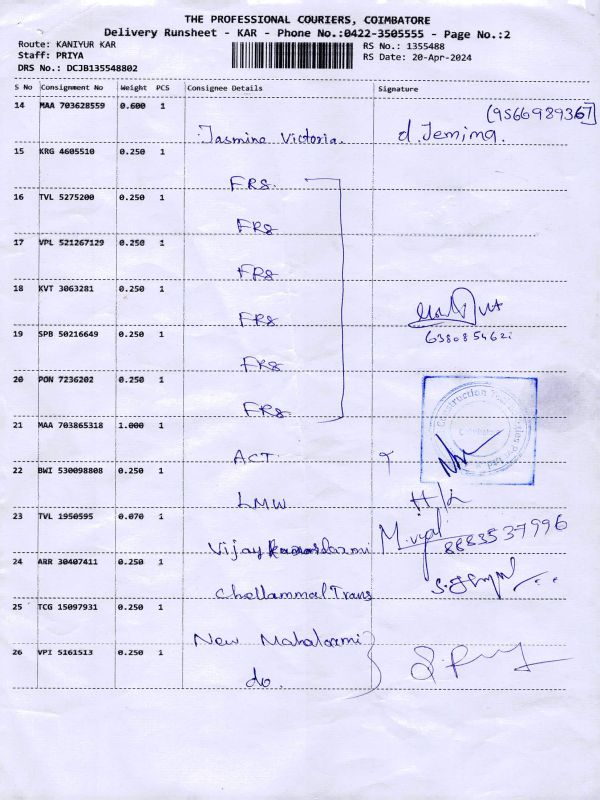 THE PROFESSIONAL COURIERS, COIMBATORE
Delivery Runsheet - KAR - Phone No.:0422-3505555 - Page No.:2
Route: KANIYUR KAR
Staff: PRIYA
DRS No.: DCJB135548802
RS No.: 1355488
RS Date: 20-Apr-2024
S No Consignment No Weight PCS Consignee Details Signature
14 MAA 703628559 0.600 1
(9566989367)
Jasmine Victoria. d. Jemima.
15 KRG 4605510 0.250 1
FRS.
16 TVL 5275200 0.250 1
FRS
17 VPL 521267129 0.250 1
FRS
18 KVT 3063281 0.250 1
FRS
19 SPB 50216649 0.250 1
FRS
20 PON 7236202 0.250 1
FRS
21 MAA 703865318 1.000 1
ACT.
22 BWI 530098808 0.250 1
LMW
23 TVL 1950595 0.070 1
Vijay M.vijal
8883537996
24 ARR 30407411 0.250 1
Chellammal Trans
25 TCG 15097931 0.250 1
New Mahalaxmi
26 VPI 5161513 0.250 1
do.